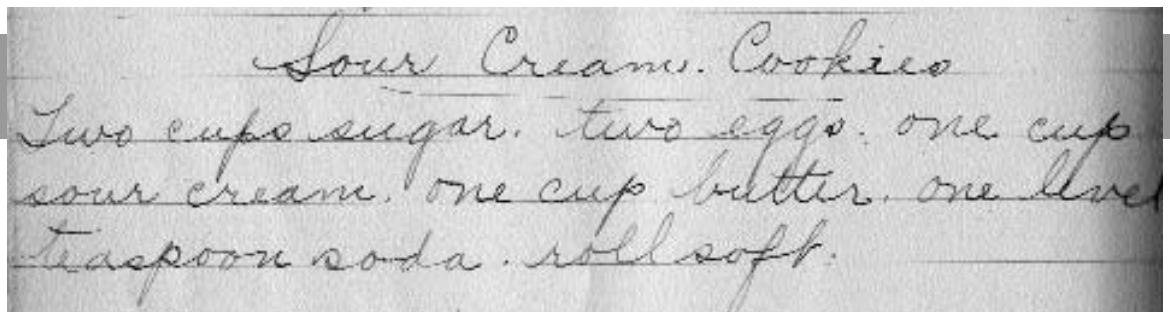 Sour Cream. Cookies
Two cups sugar. two eggs. one cup
sour cream. one cup butter. one level
teaspoon soda. roll soft.